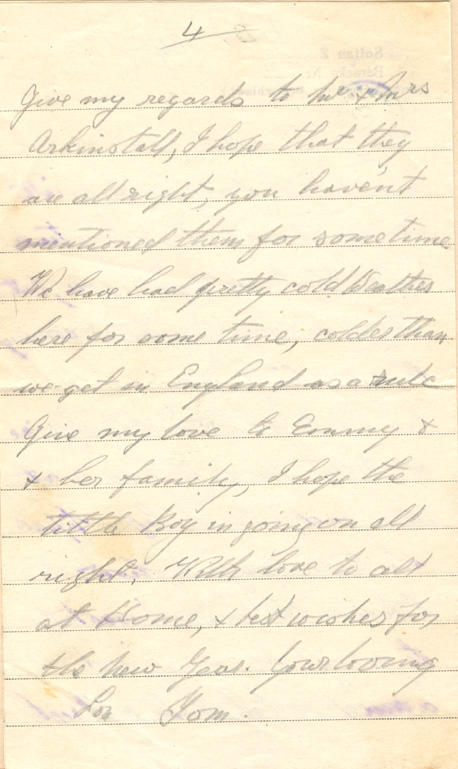 4
Give my regards to Mr & Mrs
Arkinstall, I hope that they
are all right, you haven't
mentioned them for sometime
We have had pretty cold Weather
here for some time, colder than
we get in England as a rule
Give my love to &
& her family, I hope the
little Boy in going on all
right, With love to all
at Home, & best wishes for
the New Year. Your loving
Son Tom.